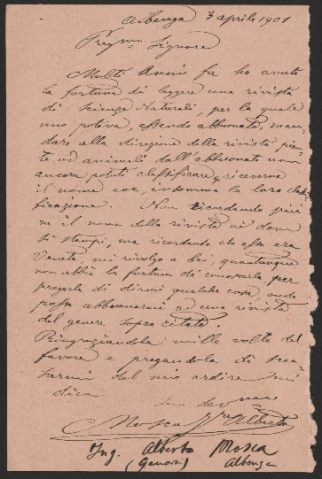 Albenga 3 aprile 1901
Preg.mo Signore
Molti anni fa ho avuto
la fortuna di leggere una rivista
di Scienze Naturali, per la quale
uno poteva, essendo abbonato, man
dare alla direzione della rivista pian
te, od animali dall'abbonato non
ancora potuti classificare e riceverne
il nome cioè, insomma la loro classi
ficazione. Non ricordando più
ne il nome della rivista nè dove
si stampi, ma ricordando che essa era
Veneta, mi rivolgo a Lei, quantunque
non abbia la fortuna di conoscerla per
pregarla di dirmi qualche cosa, onde
possa abbonarmi ad una rivista
del genere sopra citato
Ringraziandola mille volte del
favore e pregandola di scu
sarmi del mio ardire mi
dica
Mosca Alberto
Ing. Alberto Mosca
(Genova) Albenga